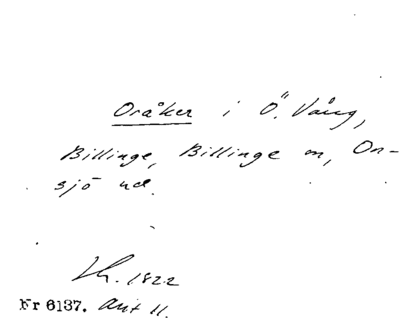 Oråker i Ö. Vång,
Billinge, Billinge sn, On-
sjö hd.
1822
Nr 6137. Avit 11.